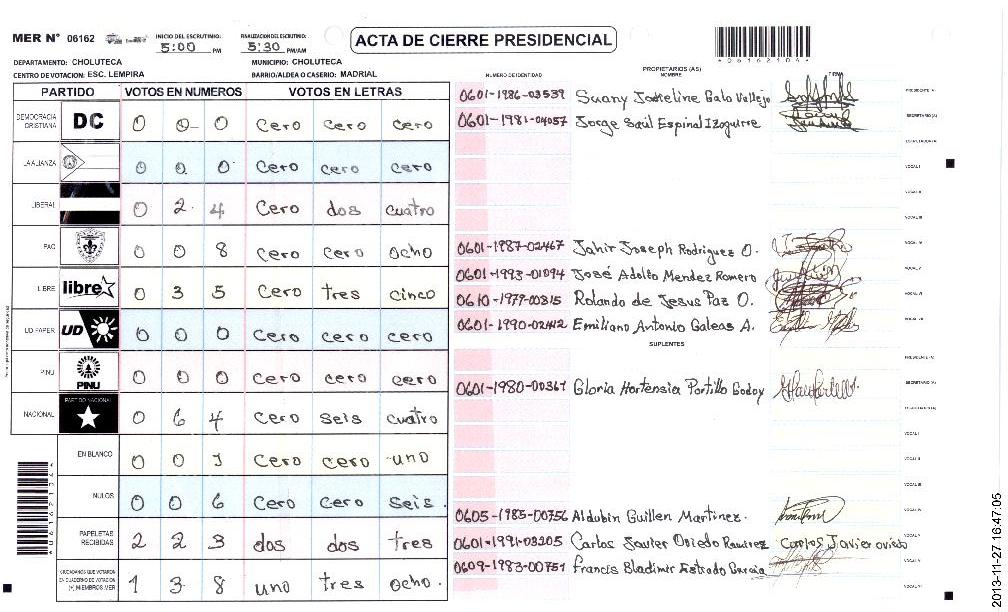 MER N° 06162 INICIO DEL ESCRUTINIO: 5:00 PM FINALIZACION DEL ESCRUTINIO: 5:30 PM/AM
ACTA DE CIERRE PRESIDENCIAL
*06162104*
DEPARTAMENTO: CHOLUTECA MUNICIPIO: CHOLUTECA
CENTRO DE VOTACION: ESC. LEMPIRA BARRIO/ALDEA O CASERIO: MADRIAL
PARTIDO VOTOS EN NUMEROS VOTOS EN LETRAS
DEMOCRACIA CRISTIANA DC 0 0 0 Cero Cero Cero
LA ALIANZA 0 0 0 Cero cero cero
LIBERAL 0 2 4 Cero dos cuatro
PAC 0 0 8 Cero Cero Ocho
LIBRE libre 0 3 5 Cero tres cinco
UD FAPER UD 0 0 0 Cero Cero cero
PINU PINU 0 0 0 Cero cero cero
NACIONAL PARTIDO NACIONAL 0 6 4 Cero seis cuatro
EN BLANCO 0 0 1 Cero cero uno
NULOS 0 0 6 Cero Cero Seis.
PAPELETAS RECIBIDAS 2 2 3 dos dos tres
CIUDADANOS QUE VOTARON EN CUADERNO DE VOTACION (+) MIEMBROS MER 1 3 8 uno tres ocho.
PROPIETARIOS (AS)
NUMERO DE IDENTIDAD NOMBRE FIRMA
0601-1986-03539 Suany Jackeline Galo Vallejo PRESIDENTE (A)
0601-1981-04057 Jorge Saúl Espinal Izaguirre SECRETARIO (A)
ESCRUTADOR (A)
VOCAL I
VOCAL II
VOCAL III
0601-1987-02467 Jahir Joseph Rodriguez O. VOCAL IV
0601-1993-01094 José Adolfo Mendez Romero VOCAL V
0610-1977-00315 Rolando de Jesus Paz O. VOCAL VI
0601-1990-02412 Emiliano Antonio Galeas A. VOCAL VII
SUPLENTES
PRESIDENTE (A)
0601-1980-00367 Gloria Hortensia Portillo Godoy SECRETARIO (A)
ESCRUTADOR (A)
VOCAL I
VOCAL II
VOCAL III
0605-1985-00756 Aldubin Guillen Martinez. VOCAL IV
0601-1991-03205 Carlos Javier Oviedo Ramirez Carlos Javier oviedo
0609-1983-00751 Francis Bladimir Estrada Garcia
*06162104*
2013-11-27 16:47:05